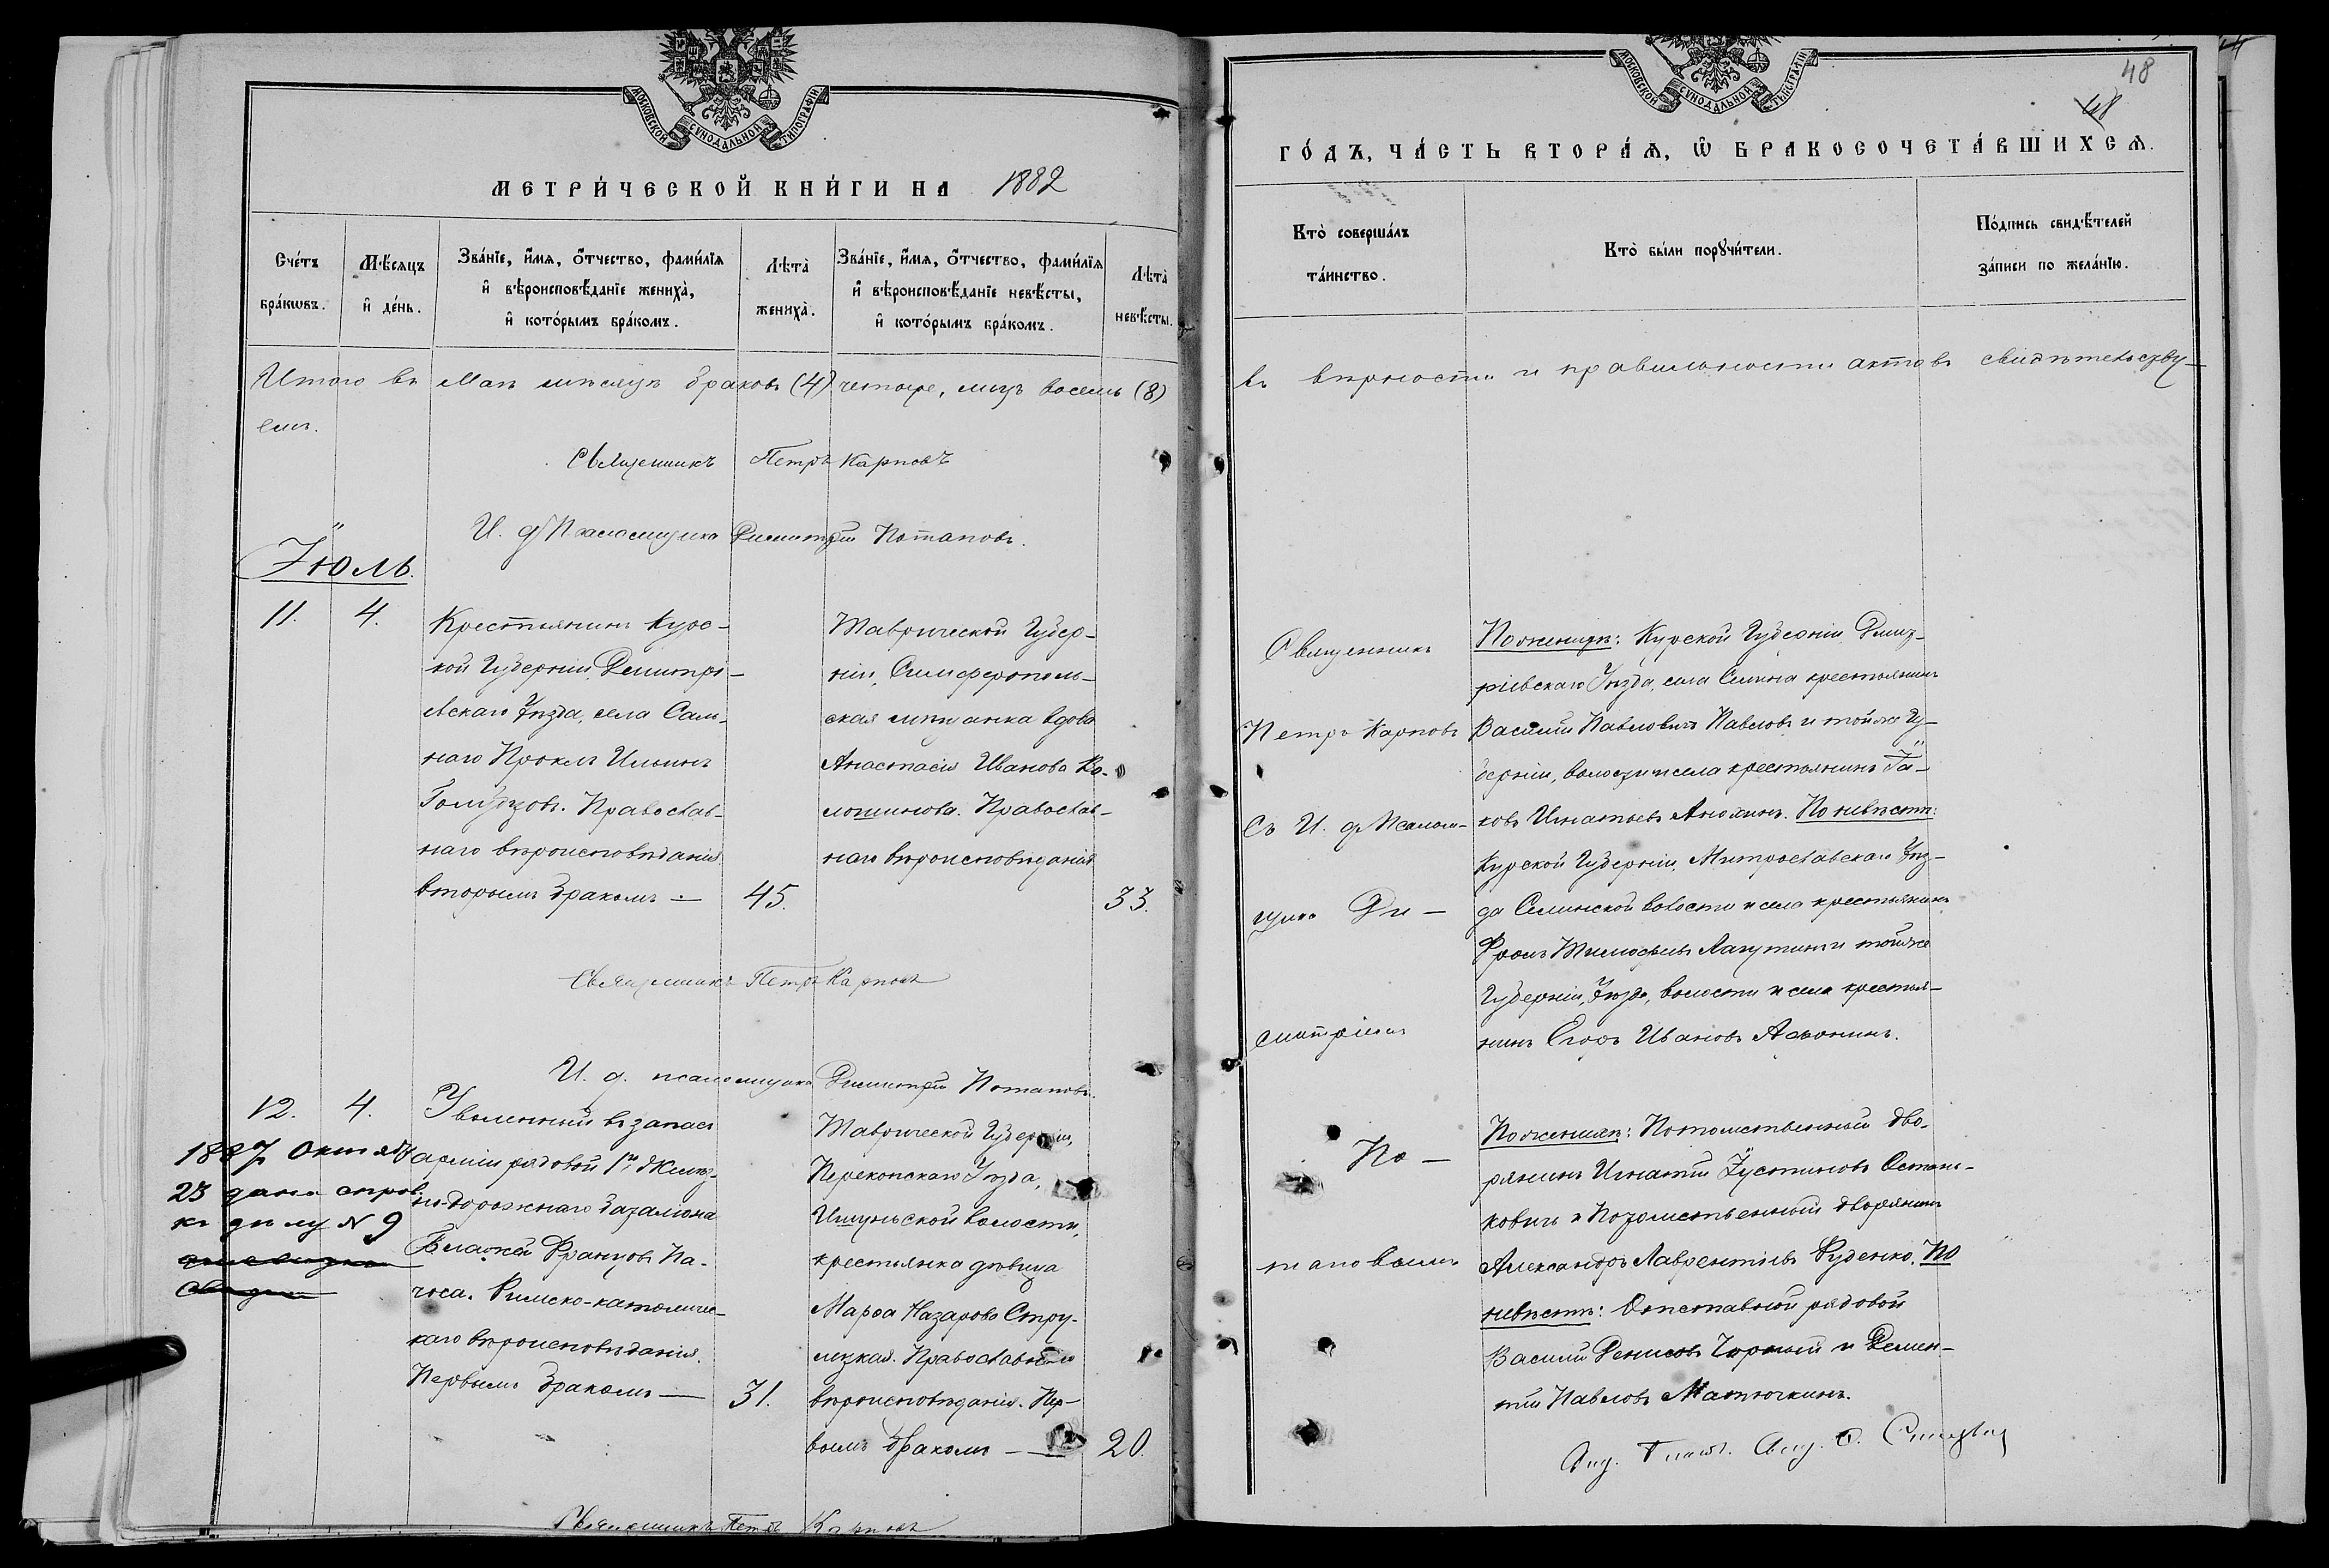 МОСКОВСКОЙ СѴНОДАЛЬНОЙ ТИПОГРАФІИ
МЕТРИ́ЧЕСКОЙ КНИ́ГИ НА 1882
Сче́тъ бра́кѡвъ.
Мѣ́сяцъ и҆ де́нь.
Зва́нїе, и҆́мя, ѻ҆́тчество, фами́лїя
и҆ вѣроисповѣ́данїе жениха̀,
и҆ кото́рымъ бра́комъ.
Лѣта̀ жениха̀.
Зва́нїе, и҆́мя, ѻ҆́тчество, фами́лїя
и҆ вѣроисповѣ́данїе невѣ́сты,
и҆ кото́рымъ бра́комъ.
Лѣта̀ невѣ́сты.
Итого въ Маѣ мѣсяцѣ браковъ (4) четыре, лицъ восемь (8)
емъ.
Священникъ Петръ Карповъ
И. д. Псаломщика Димитрій Потаповъ.
Іюль.
11. 4.
Крестьянинъ Курс-
кой Губерніи, Демитрі-
евскаго Уѣзда, села Саль-
наго Проклъ Ильинъ
Голубцовъ. Православ-
наго вѣроисповѣданія
вторымъ бракомъ — 45.
Таврической Губер-
ніи, Симферополь-
ская мѣщанка вдова
Анастасія Иванова Ко-
лошинова. Православ-
наго вѣроисповѣданія
33.
Священникъ Петръ Карповъ
И. д. псаломщика Димитрій Потаповъ.
12. 4.
1887 Октяб
23 дана справ.
къ дѣлу № 9
Уволенный въ запасъ
арміи рядовой 1го Желѣз-
но-дорожнаго баталіона
Блажей Францовъ Па-
чоса. Римско-католичес-
каго вѣроисповѣданія.
Первымъ бракомъ — 31.
Таврической Губерніи,
Перекопскаго Уѣзда,
Ишуньской волости,
крестьянка дѣвица
Марѳа Назарова Стру-
лецкая. Православнаго
вѣроисповѣданія. Пер-
вымъ бракомъ — 20.
Священникъ Петръ Карповъ
48
48
МОСКОВСКОЙ СѴНОДАЛЬНОЙ ТИПОГРАФІИ
ГО́ДЪ, ЧА́СТЬ ВТОРА́Ѧ, Ѡ҆ БРАКОСОЧЕТА́ВШИХСѦ.
Кто̀ соверша́лъ
та́инство.
Кто̀ бы́ли порꙋчи́тели.
По́дпись свидѣ́телей
за́писи по жела́нїю.
въ вѣрности и правильности актовъ свидѣтельству-
Священникъ
Петръ Карповъ
съ И. д. Псалом-
щика Ди-
митріемъ
По-
таповымъ
По женихѣ: Курской Губерніи Дмит-
ріевскаго Уѣзда, села Селина крестьянинъ
Василій Павловичъ Павловъ и той же Гу-
берніи, волости и села крестьянинъ Іа-
ковъ Игнатьевъ Анохинъ. По невѣстѣ:
Курской Губерніи, Митрославскаго Уѣз-
да Селинской волости и села крестьянинъ
Фролъ Тимофѣевъ Лагутинъ и той же
Губерніи, Уѣзда, волости и села крестья-
нинъ Егоръ Ивановъ Афонинъ.
По женихѣ: Потомственный дво-
рянинъ Игнатій Іустиновъ Остань-
ковичъ и Потомственный дворянинъ
Александръ Лаврентіевъ Руденко. По
невѣстѣ: Отставной рядовой
Василій Денисовъ Чорный и Демен-
тій Павловъ Матюшкинъ.